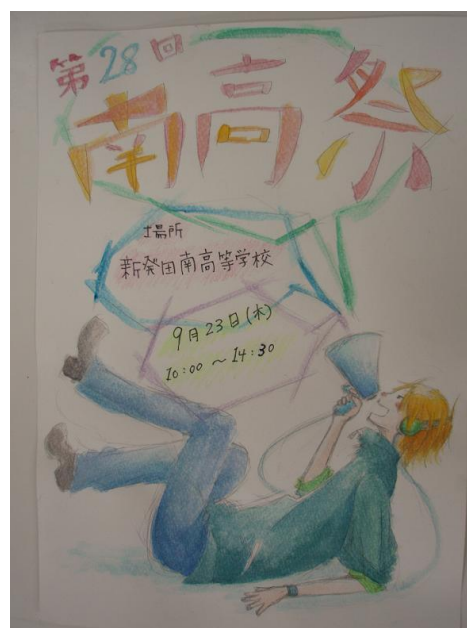 第28回
南高祭
場所
新発田南高等学校
9月23日(木)
10:00 〜 14:30